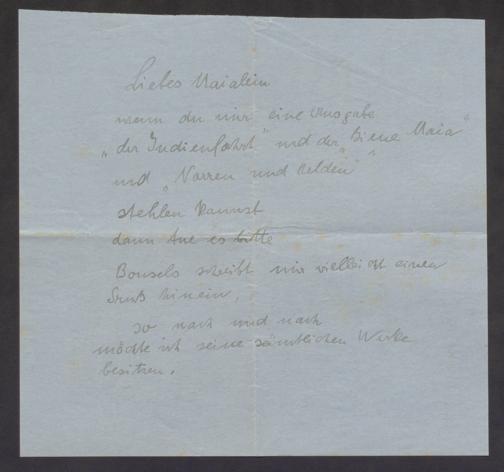 Liebes Maialein
wenn du mir eine Ausgabe
„der Indienfahrt" und der „Biene Maia"
und „Narren und Helden"
stehlen kannst
dann tue es bitte
Bonsels schreibt mir vielleicht einen
Gruß hinein,
so nach und nach
möchte ich seine sämtlichen Werke
besitzen.